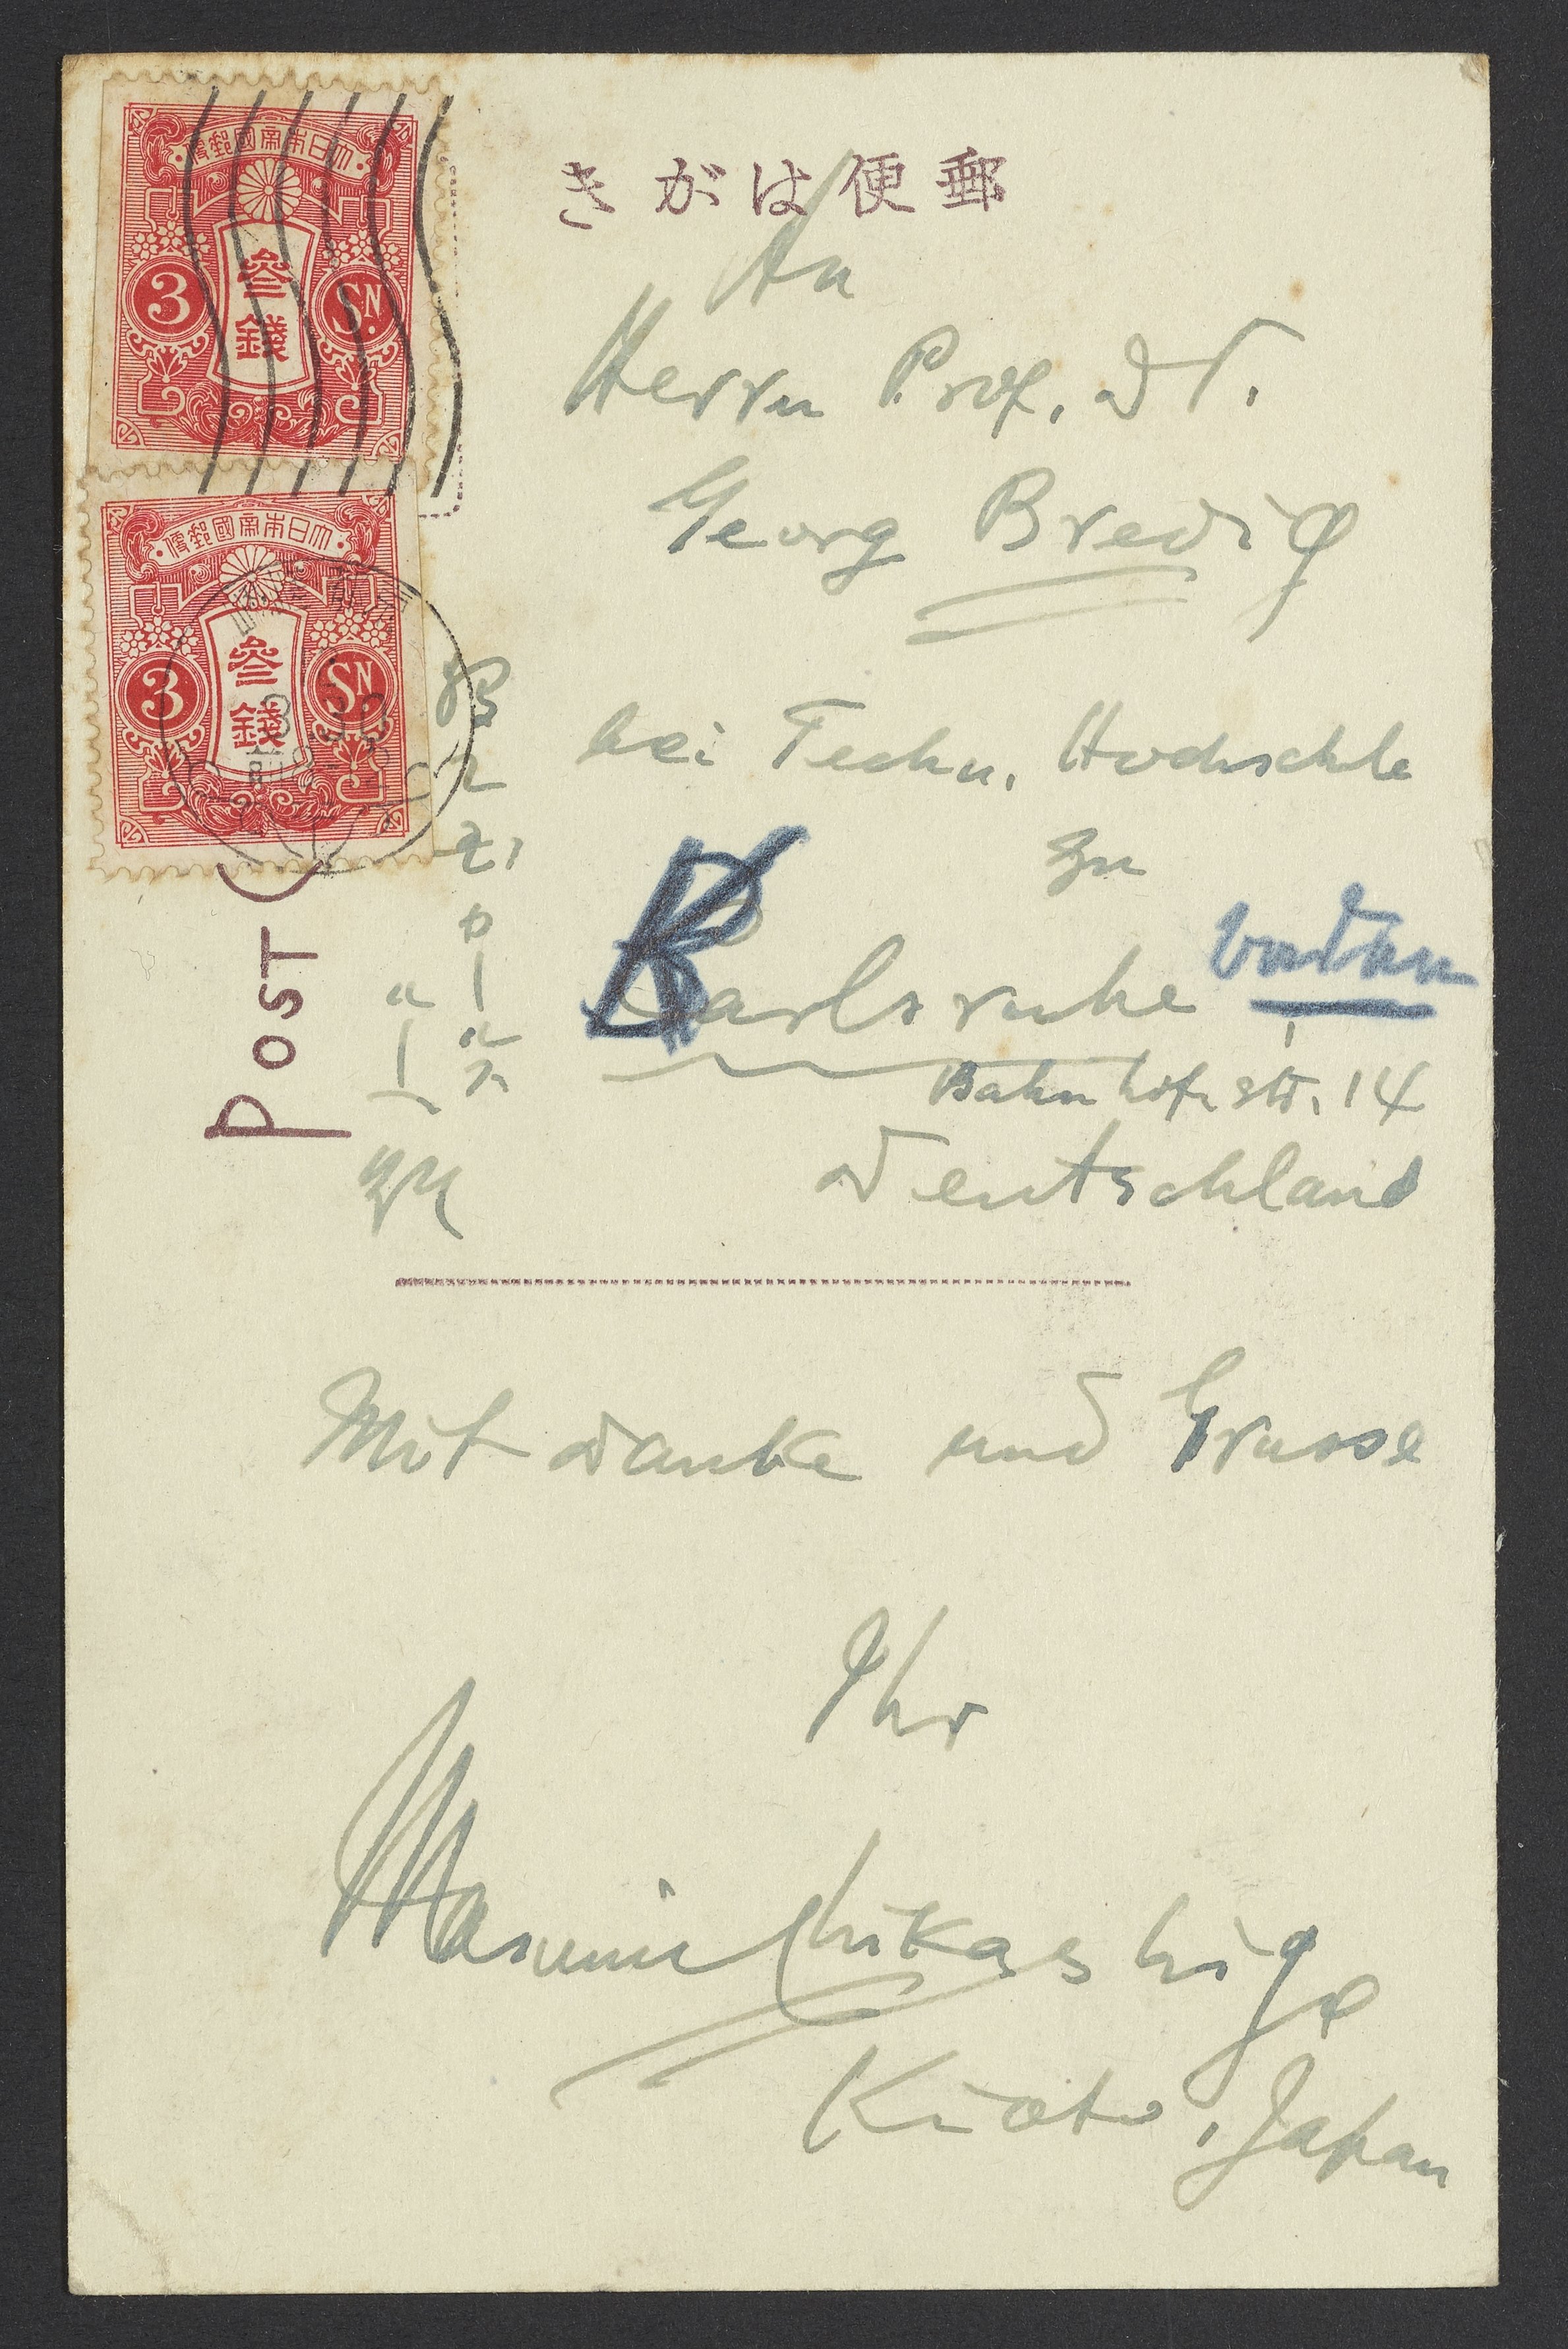 大日本帝國郵便
3 参錢 SN
大日本帝國郵便
3 参錢 SN
郵便はがき
POST
An
Herrn Prof. Dr.
Georg Bredig
bei Techn. Hochschle
zu
Karlsruhe
Baden
Bahnhofstr. 14
Deutschland
Mit Danke und Grusse
Ihr
Masumi Chikashige
Kioto, Japan